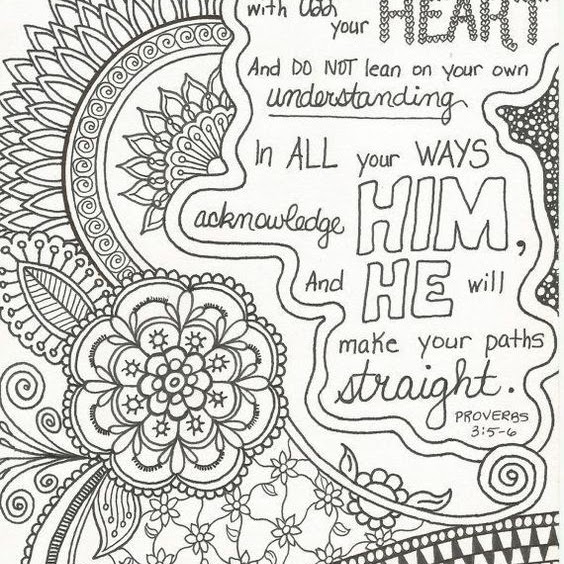 with All your HEART
And DO NOT lean on your own
understanding
In ALL your WAYS
acknowledge HIM,
And HE will
make your paths
straight.
PROVERBS
3:5-6